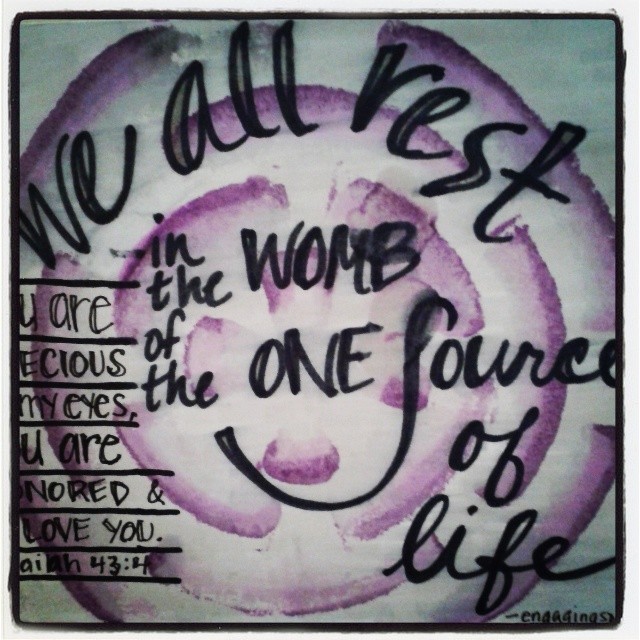 We all rest
in
the WOMB
of
the ONE Source
of
life
u are
ECIOUS
my eyes,
u are
NORED &
LOVE YOU.
aiah 43:4